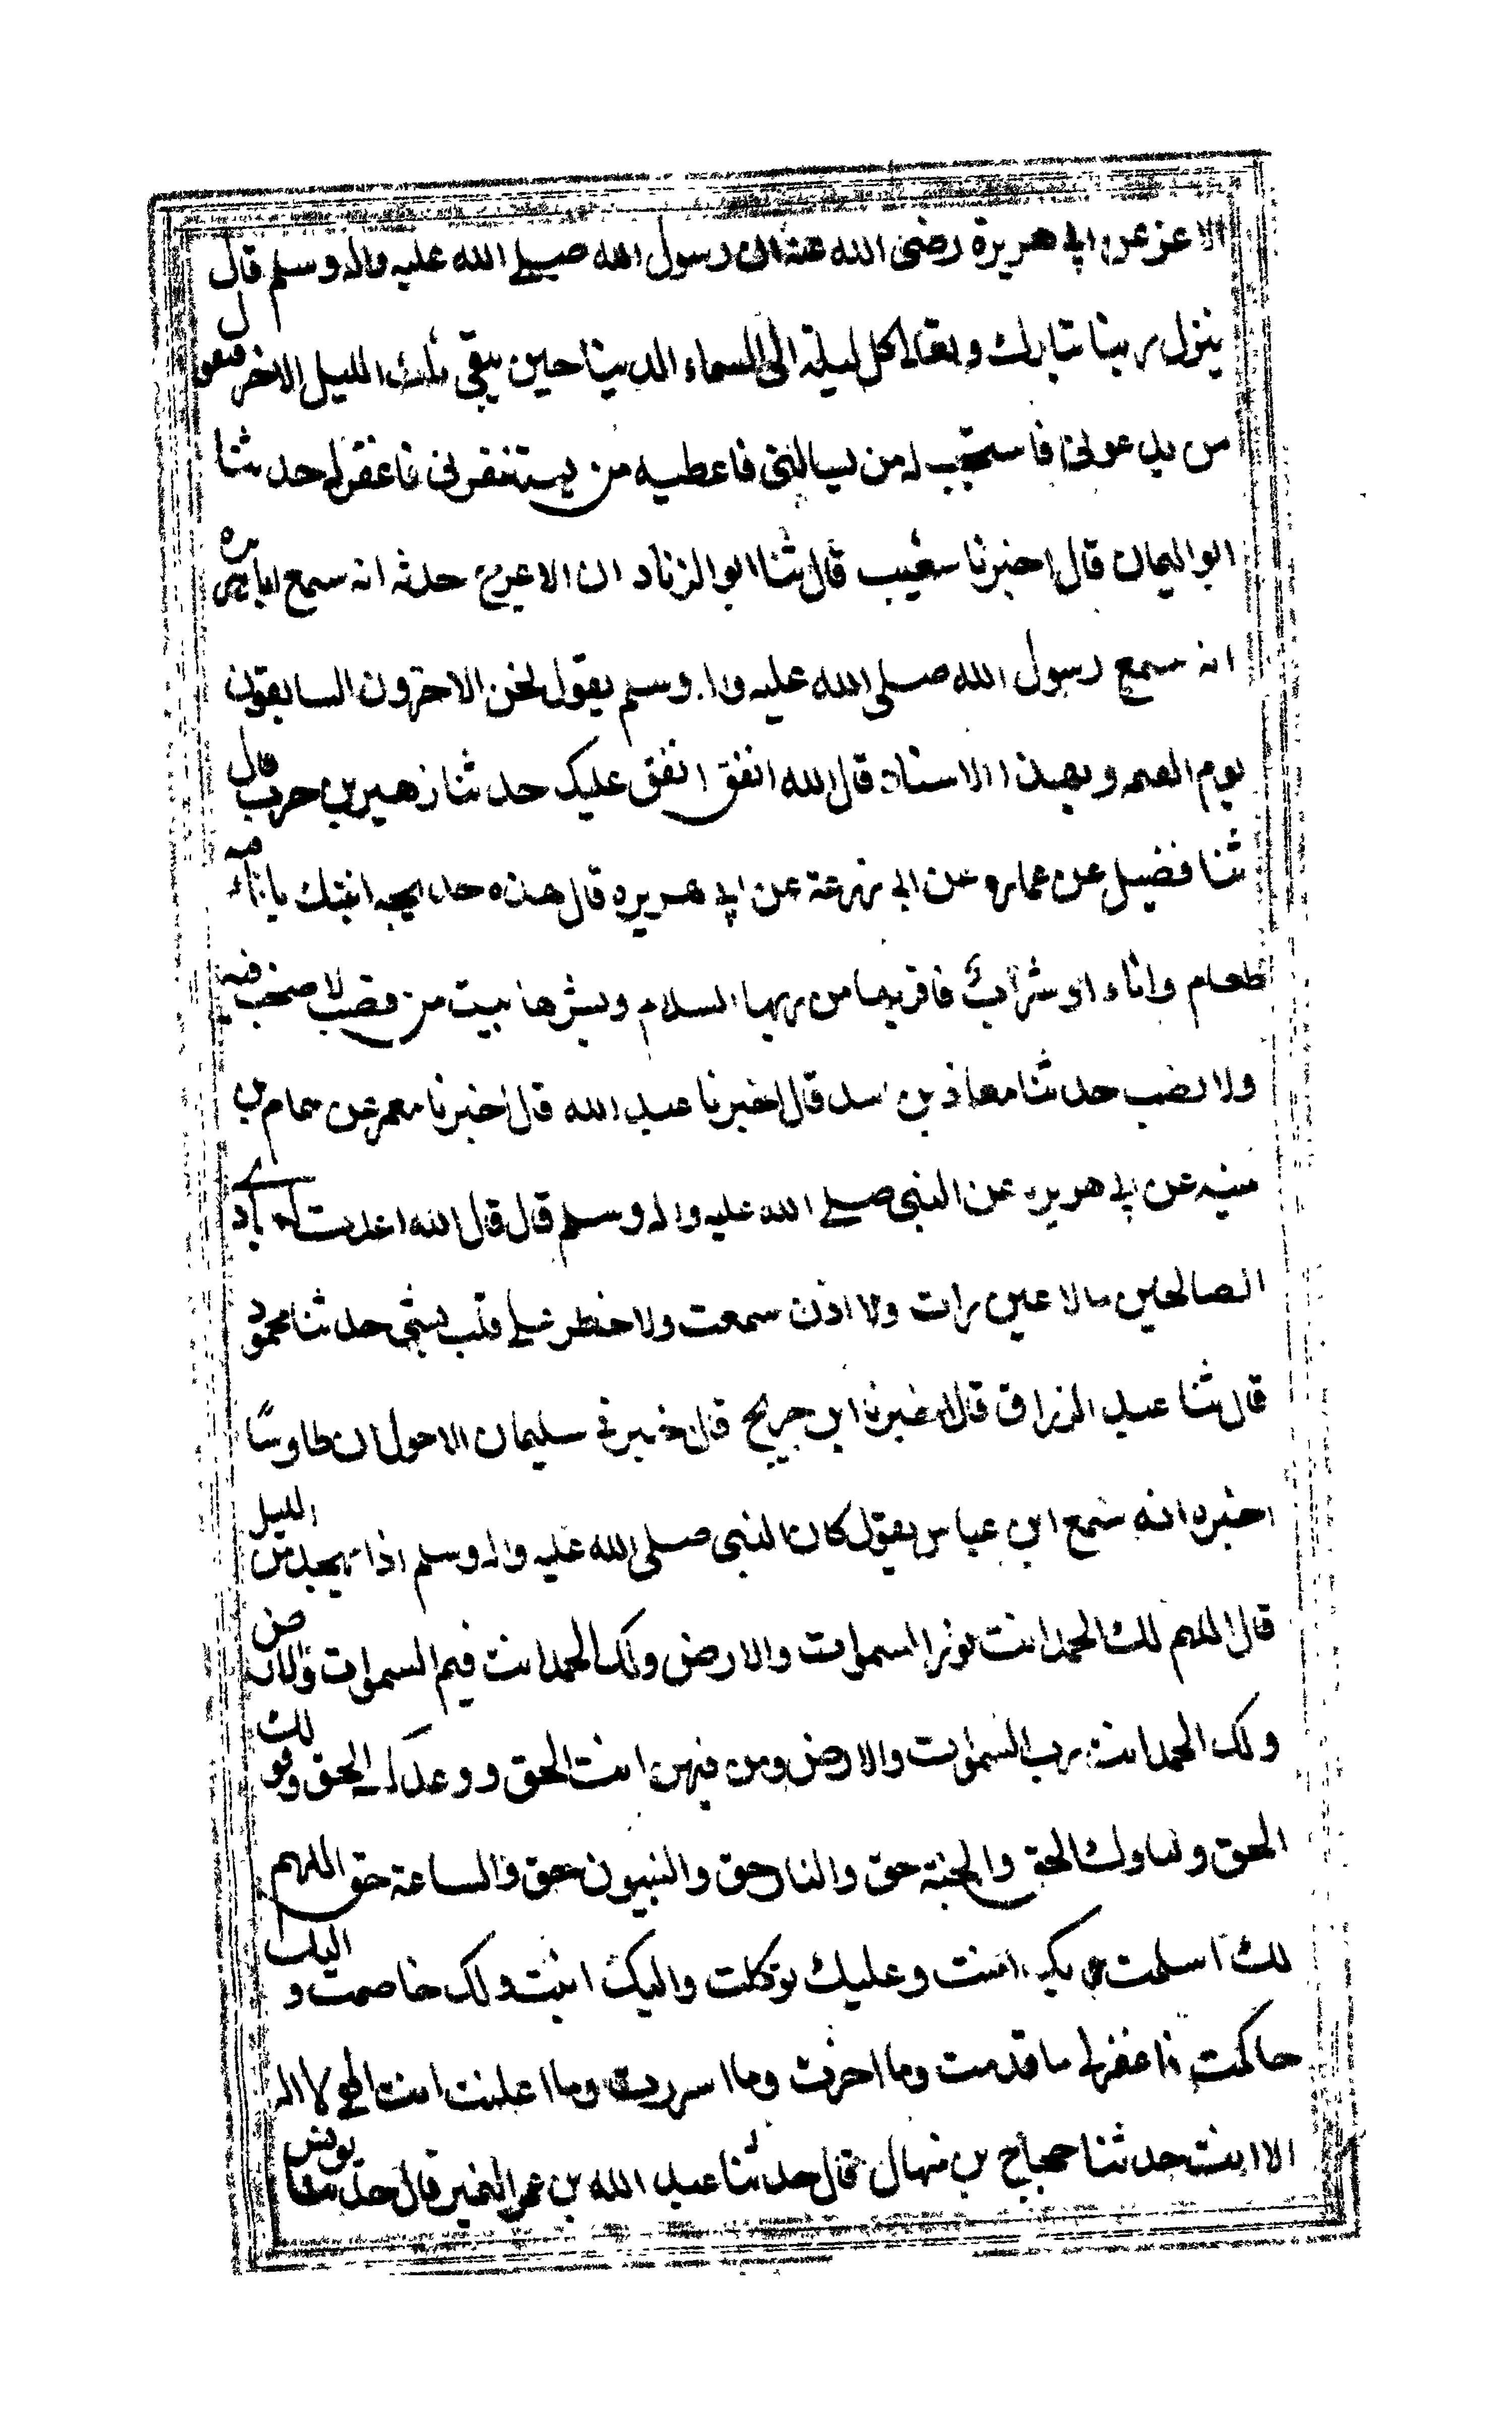 الاغر عن ابي هريرة رضى الله عنه ان رسول الله صلى الله عليه واله وسلم قال
ينزل ربنا تبارك وتعالى كل ليلة الى السماء الدنيا حين يبقى ثلث الليل الاخر فيقول
من يدعونى فاستجيب له من يسالنى فاعطيه من يستغفرنى فاغفرله حدثنا
ابو اليمان قال اخبرنا شعيب قال ثنا ابو الزناد ان الاعرج حدثه انه سمع ابا هريره
انه سمع رسول الله صلى الله عليه واله وسلم يقول نحن الاخرون السابقون
يوم القيمه وبهذا الاسناد قال الله انفق انفق عليك حدثنا زهير بن حرب قال
ثنا فضيل عن عماره عن ابي زرعة عن ابي هريره قال هذه خديجه اتتك باناء فيه
طعام واناء او شراب فاقريها من ربها السلام وبشرها ببيت من قصب لا صخب فيه
ولا نصب حدثنا معاذ بن اسد قال اخبرنا عبد الله قال اخبرنا معمر عن همام بن
منبه عن ابي هريره عن النبي صلى الله عليه واله وسلم قال قال الله اعددت لعبادي
الصالحين ما لا عين رات ولا اذن سمعت ولا خطر على قلب بشر حدثنا محمود
قال ثنا عبد الرزاق قال اخبرنا ابن جريج قال اخبرني سليمان الاحول ان طاوسًا
اخبره انه سمع ابن عباس يقول كان النبي صلى الله عليه واله وسلم اذا تهجد من الليل
قال اللهم لك الحمد انت نور السموات والارض ولك الحمد انت قيم السموات والارض
ولك الحمد انت رب السموات والارض ومن فيهن انت الحق ووعدك الحق وقولك
الحق ولقاوك الحق والجنة حق والنار حق والنبيون حق والساعة حق اللهم
لك اسلمت وبك امنت وعليك توكلت واليك انبت ولك خاصمت و اليك
حاكمت فاغفرلي ما قدمت وما اخرت وما اسررت وما اعلنت انت الهي لا اله
الا انت حدثنا حجاج بن منهال قال حدثنا عبد الله بن عمر النميري قال حدثنا يونس